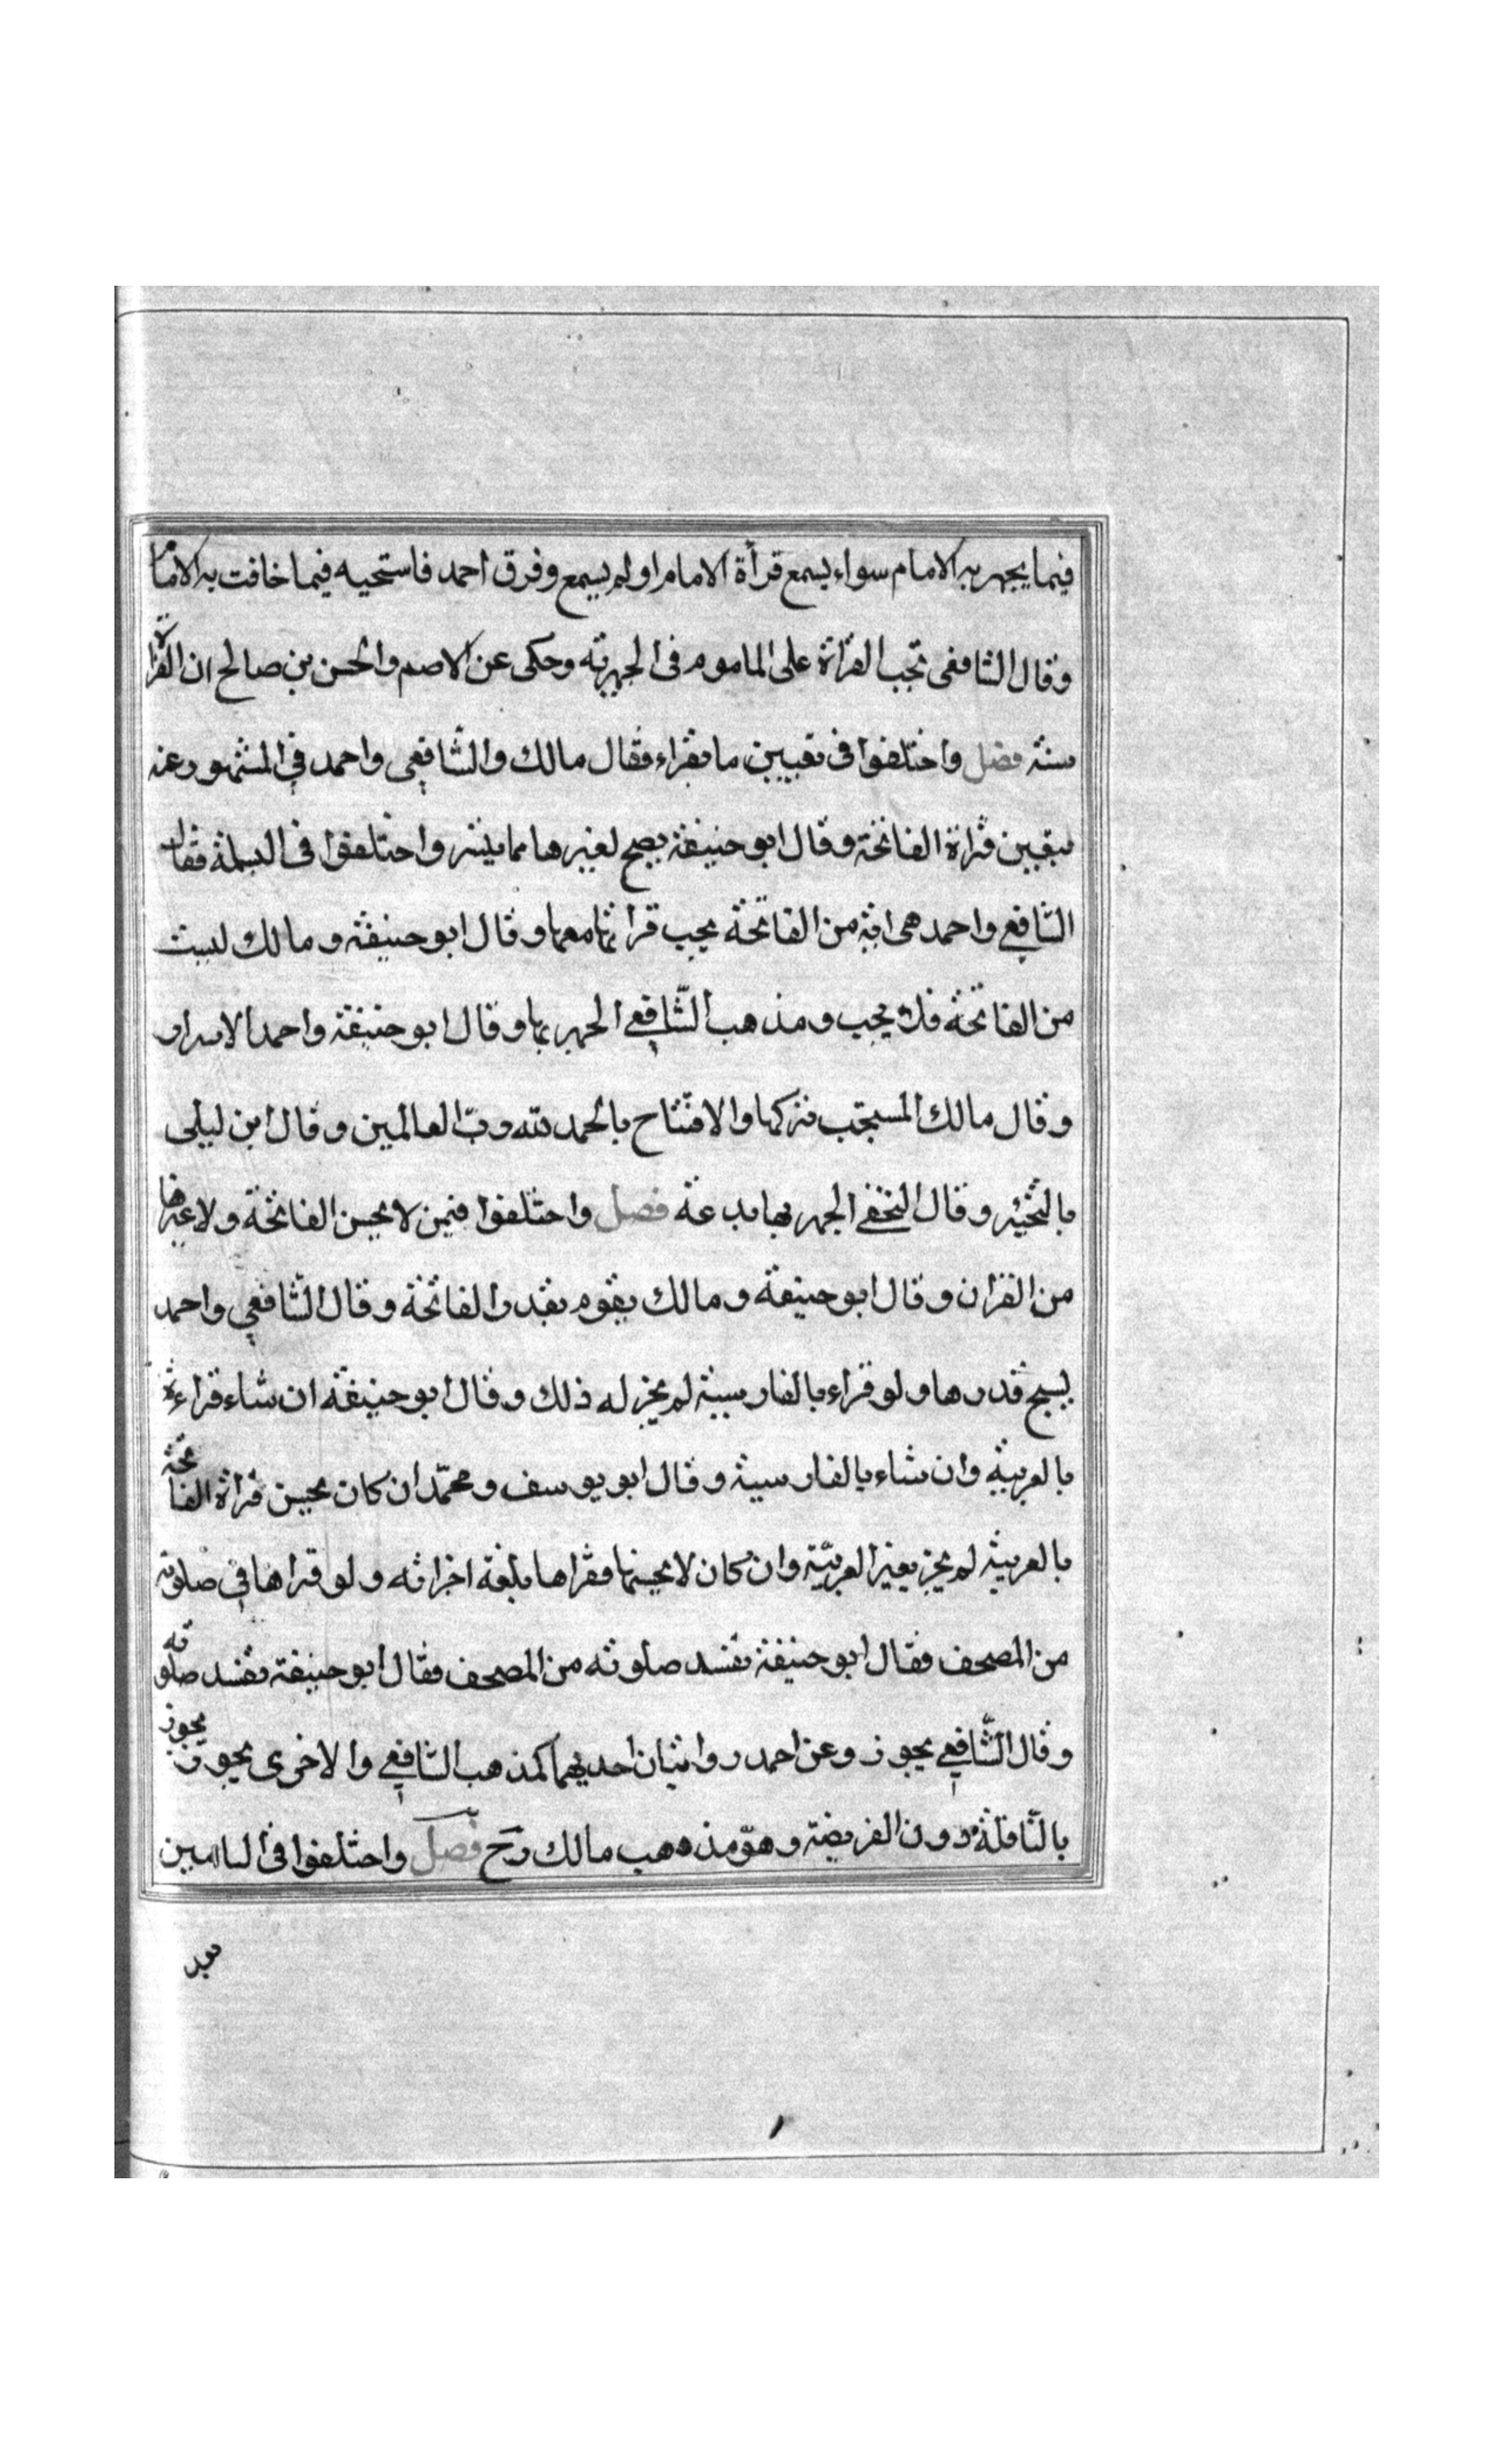 فيما يجهر به الامام سواء يسمع قرأة الامام او لم يسمع وفرق احمد فاستحبه فيما خافت به الامام
وقال الشافعى تجب القرأة على الماموم فى الجهرية وحكى عن الاصم والحسن بن صالح ان القرأة
سنة فصل واختلفوا فى تعيين ما يقراء فقال مالك والشافعي واحمد في المشهور عنه
يتعين قراة الفاتحة وقال ابو حنيفة يصح لغيرها مما يتيسر واختلفوا فى البسملة فقال
الشافعي واحمد هى اية من الفاتحة يجب قراتها معها وقال ابو حنيفة ومالك ليست
من الفاتحة فلا يجب ومذهب الشافعي الجهر بها وقال ابو حنيفة واحمد الاسرار
وقال مالك المستحب تركها والافتتاح بالحمد لله رب العالمين وقال ابن ليلى
بالتخيير وقال النخعي الجهر بها بدعة فصل واختلفوا فيمن لا يحسن الفاتحة ولا غيرها
من القران وقال ابو حنيفة ومالك يقوم بقدر الفاتحة وقال الشافعي واحمد
يسبح قدرها ولو قراء بالفارسية لم يجز له ذلك وقال ابو حنيفة ان شاء قراءته
بالعربية وان شاء بالفارسية وقال ابو يوسف ومحمد ان كان يحسن قراة الفاتحة
بالعربية لم يجز بغير العربية وان كان لا يحسنها فقراها بلغة اجزاته ولو قراها في صلوته
من المصحف فقال ابو حنيفة تفسد صلوته من المصحف فقال ابو حنيفة تفسد صلوته
وقال الشافعي يجوز وعن احمد روايتان احديهما كمذهب الشافعي والاخرى يجوز يجوز
بالنافلة دون الفريضة وهو مذهب مالك رح فصل واختلفوا فى التامين
بعد